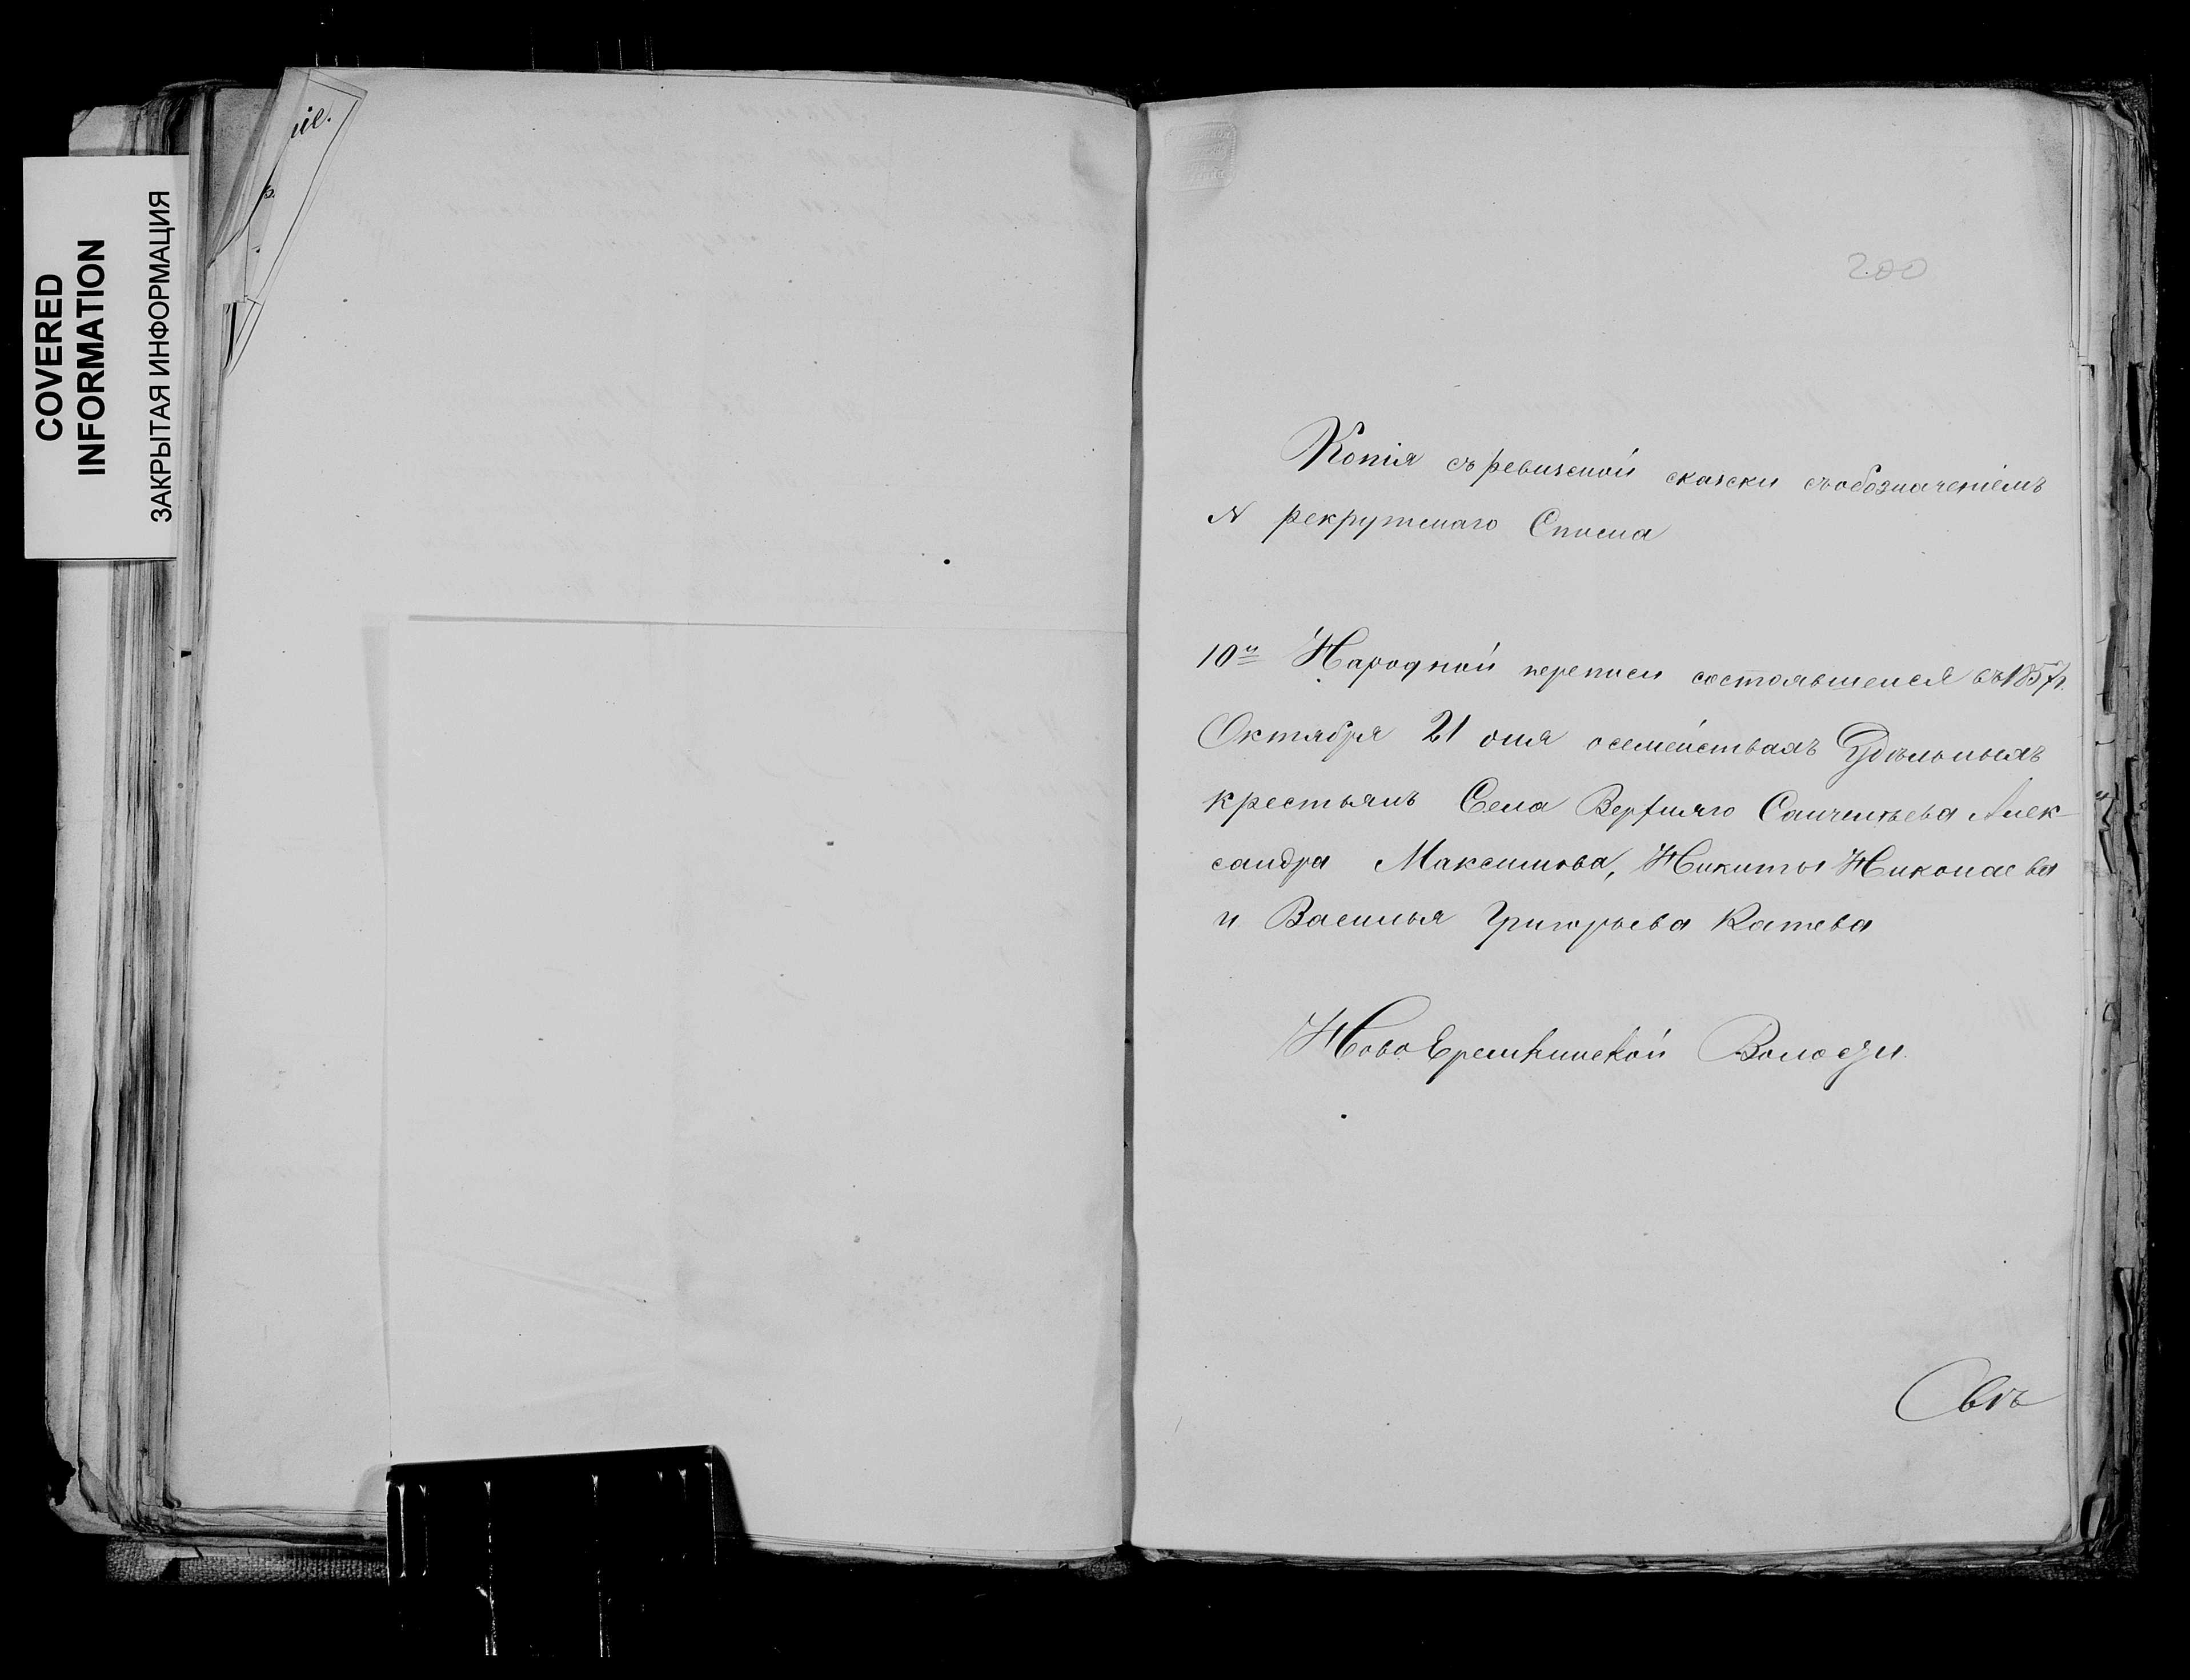 COVERED
INFORMATION
ЗАКРЫТАЯ ИНФОРМАЦИЯ
ie.
200
Копія съ ревизской сказски съ обозначеніемъ
N рекрутскаго Списка
10й Народной переписи состоявшейся въ 1857 г.
Октября 21 дня о семействахъ Удѣльныхъ
крестьянъ Села Верхняго Санчелѣева Алек-
сандра Максимова, Никиты Николаева
и Василья Григорьева Катева
Ново Еремкинской Волости